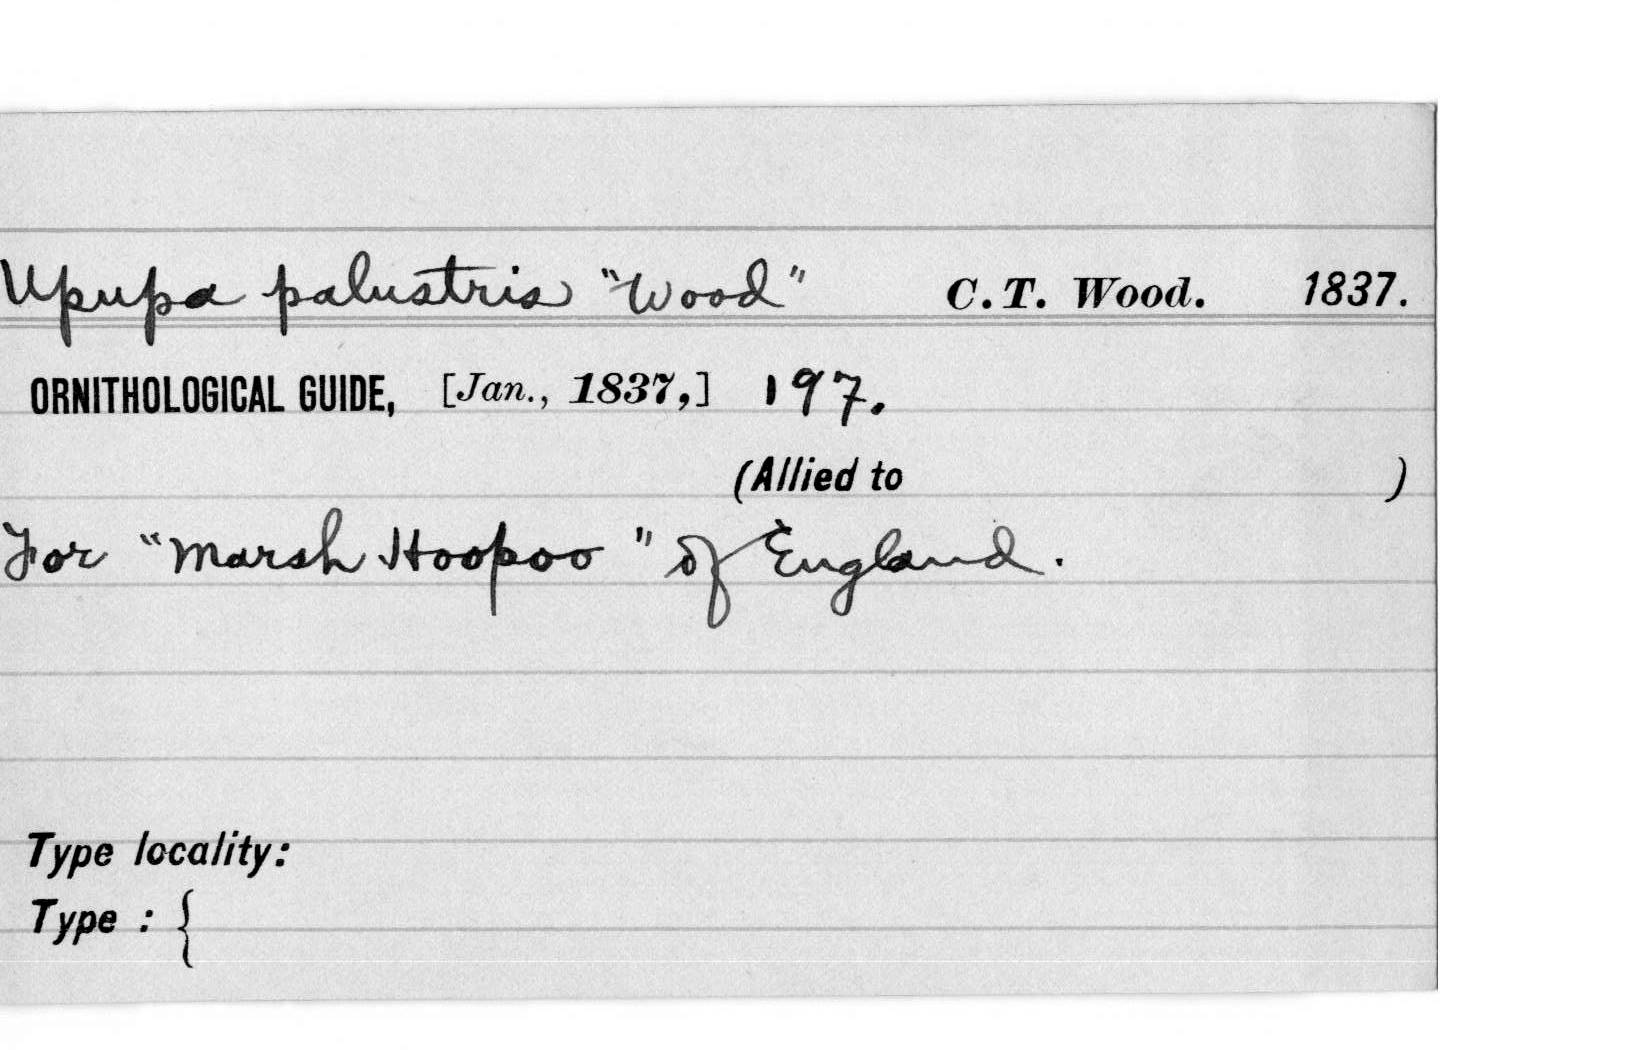 Upupa palustris "Wood" C. T. Wood. 1837.
ORNITHOLOGICAL GUIDE, [Jan., 1837,] 197.
(Allied to )
For "Marsh Hoopoo" of England.
Type locality:
Type : {